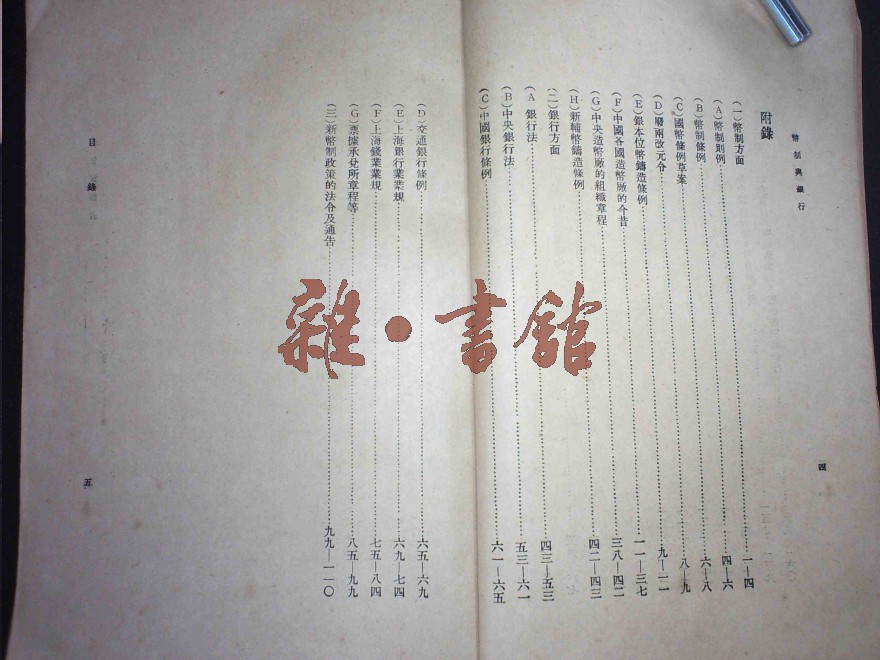 幣制與銀行
四
附錄
(一)幣制方面
(A)幣制則例……一—四
(B)幣制條例……四—六
(C)國幣條例草案……六—八
(D)廢兩改元令……八—九
(E)銀本位幣鑄造條例……九—一一
(F)中國各國造幣廠的今昔……一一—三七
(G)中央造幣廠的組織章程……三八—四二
(H)新輔幣鑄造條例……四二—四三
(二)銀行方面
(A)銀行法……四三—五三
(B)中央銀行法……五三—六一
(C)中國銀行條例……六一—六五
(D)交通銀行條例……六五—六九
(E)上海銀行業業規……六九—七四
(F)上海錢業業規……七五—八四
(G)票據承兌所章程等……八五—九九
(三)新幣制政策的法令及通告……九九—一一〇
目錄
五
雜·書館